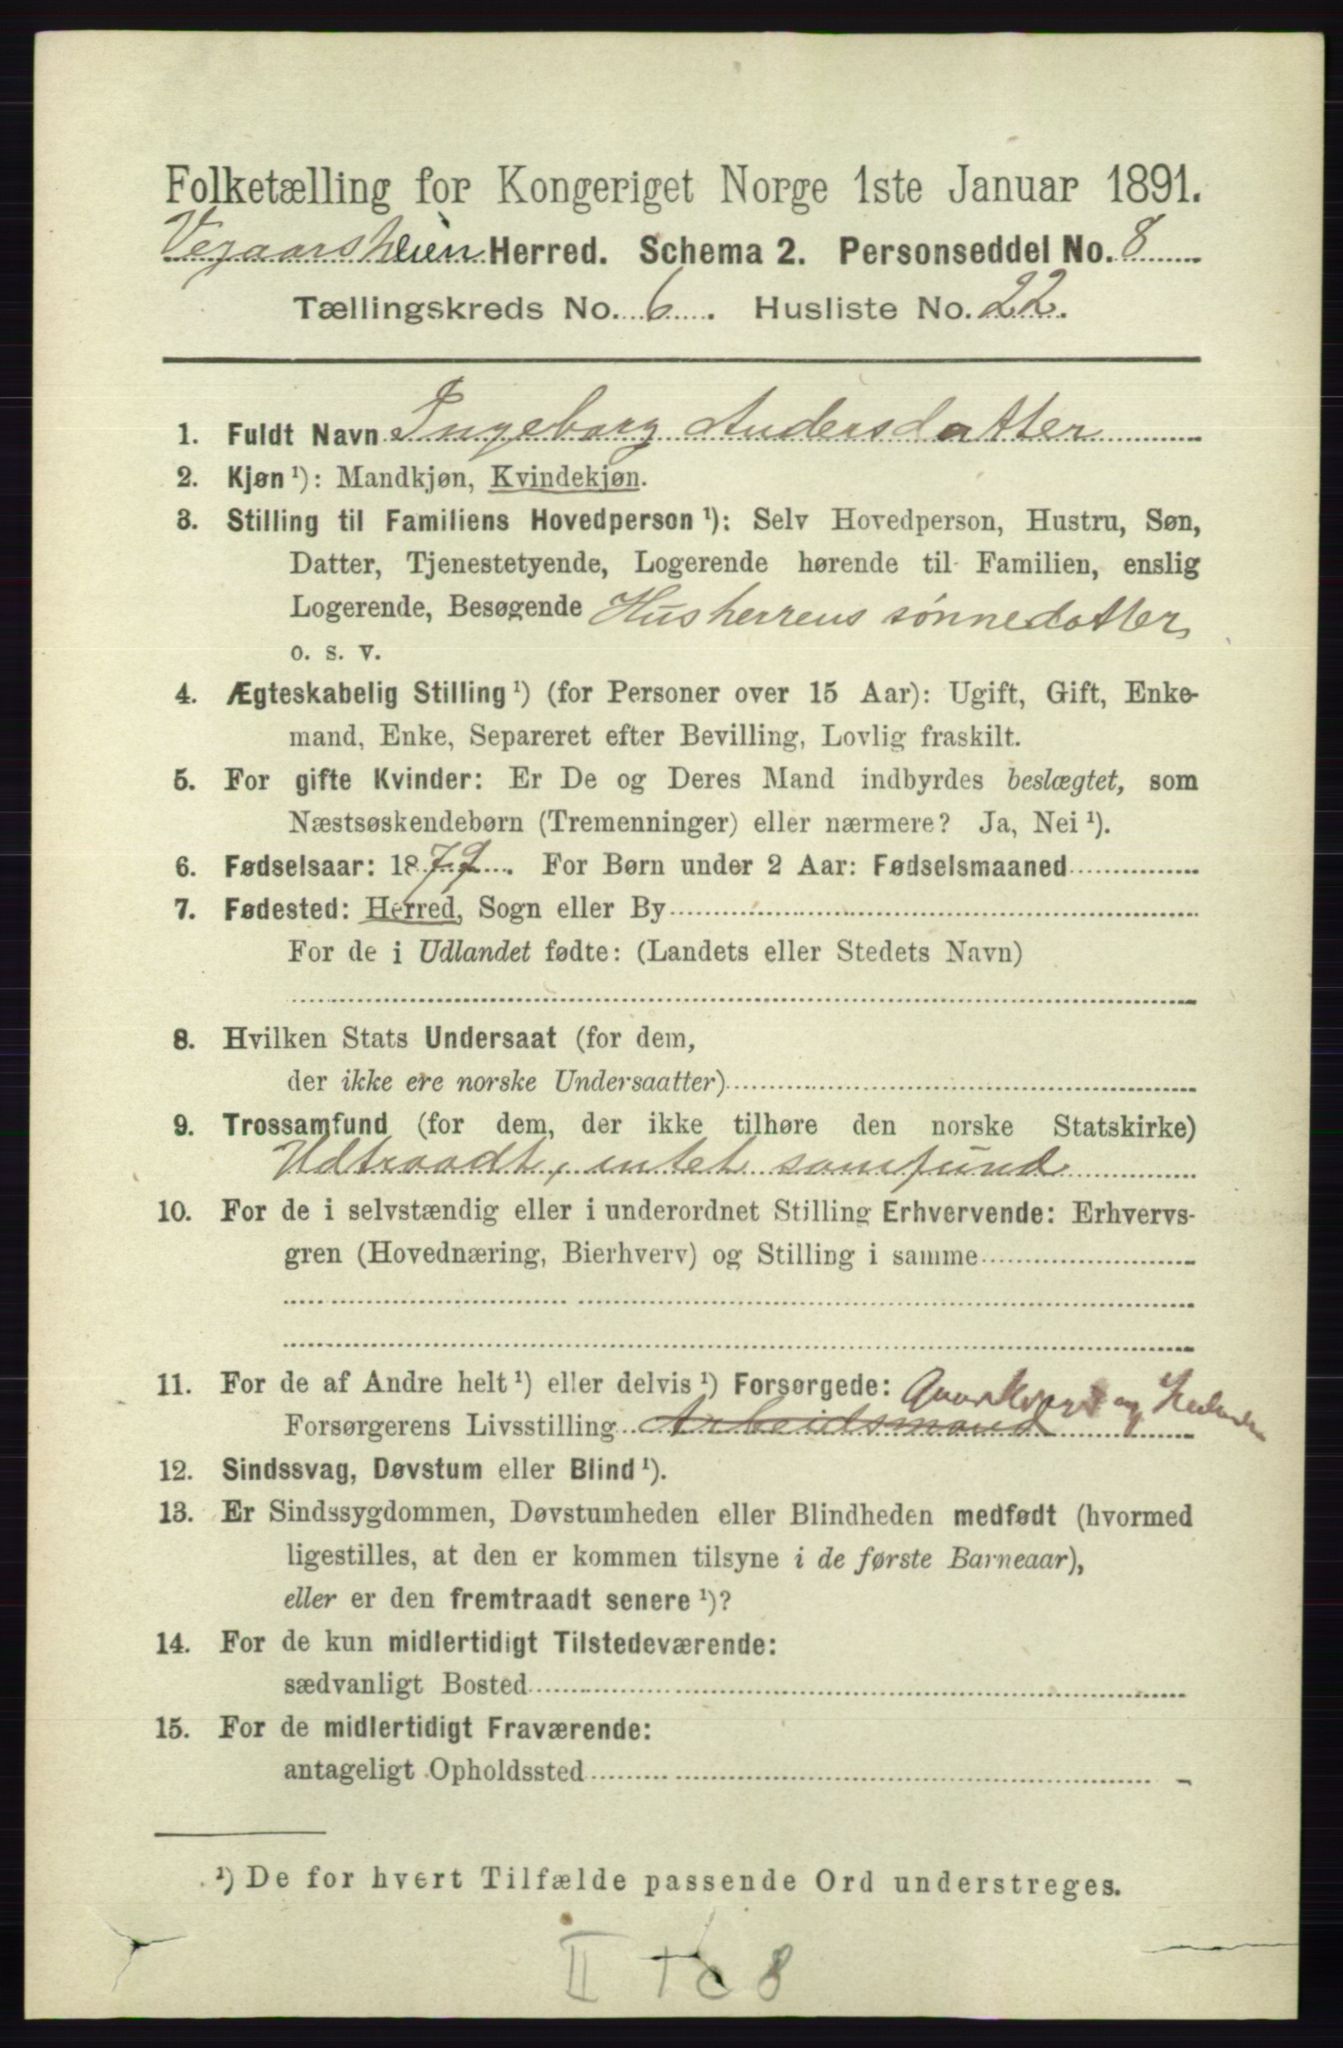 Folketælling for Kongeriget Norge 1ste Januar 1891.
Vegaarsheien Herred. Schema 2. Personseddel No. 8
Tællingskreds No. 6. Husliste No. 22.
1. Fuldt Navn Ingeborg Andersdatter
2. Kjøn ¹): Mandkjøn, Kvindekjøn.
3. Stilling til Familiens Hovedperson ¹): Selv Hovedperson, Hustru, Søn,
Datter, Tjenestetyende, Logerende hørende til Familien, enslig
Logerende, Besøgende Husherrens sønnedatter
o. s. v.
4. Ægteskabelig Stilling ¹) (for Personer over 15 Aar): Ugift, Gift, Enke-
mand, Enke, Separeret efter Bevilling, Lovlig fraskilt.
5. For gifte Kvinder: Er De og Deres Mand indbyrdes beslægtet, som
Næstsøskendebørn (Tremenninger) eller nærmere? Ja, Nei ¹).
6. Fødselsaar: 1879. For Børn under 2 Aar: Fødselsmaaned
7. Fødested: Herred, Sogn eller By
For de i Udlandet fødte: (Landets eller Stedets Navn)
8. Hvilken Stats Undersaat (for dem,
der ikke ere norske Undersaatter)
9. Trossamfund (for dem, der ikke tilhøre den norske Statskirke)
Udtraadt, intet samfund
10. For de i selvstændig eller i underordnet Stilling Erhvervende: Erhvervs-
gren (Hovednæring, Bierhverv) og Stilling i samme
11. For de af Andre helt ¹) eller delvis ¹) Forsørgede: og
Forsørgerens Livsstilling Arbeidsmand
12. Sindssvag, Døvstum eller Blind ¹).
13. Er Sindssygdommen, Døvstumheden eller Blindheden medfødt (hvormed
ligestilles, at den er kommen tilsyne i de første Barneaar),
eller er den fremtraadt senere ¹)?
14. For de kun midlertidigt Tilstedeværende:
sædvanligt Bosted
15. For de midlertidigt Fraværende:
antageligt Opholdssted
¹) De for hvert Tilfælde passende Ord understreges.
II 8